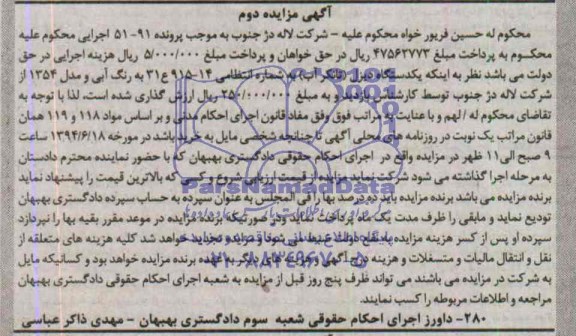 آگهی مزایده دوم
محکوم له حسین فریور خواه محکوم علیه – شرکت لاله دژ جنوب به موجب پرونده ۹۱-۵۱ اجرایی محکوم علیه
محکوم به پرداخت مبلغ ۴۷۵۶۲۷۷۳ ریال در حق خواهان و پرداخت مبلغ ۵/۰۰۰/۰۰۰ ریال هزینه اجرایی در حق
دولت می باشد نظر به اینکه یکدستگاه به شماره انتظامی ۱۴-۹۱۵ع۳۱ به رنگ آبی و مدل ۱۳۵۴ از
شرکت لاله دژ جنوب توسط کارشناس بازدید و به مبلغ ۲۵۰/۰۰۰/۰۰۰ ریال ارزش گذاری شده است، لذا با توجه به
تقاضای محکوم له / لهم و با عنایت به مراتب فوق وفق مفاد قانون اجرای احکام مدنی و بر اساس مواد ۱۱۸ و ۱۱۹ همان
قانون مراتب یک نوبت در روزنامه های محلی آگهی تا چنانچه شخصی مایل به خرید باشد در مورخه ۱۳۹۴/۶/۱۸ ساعت
۹ صبح الی ۱۱ ظهر در مزایده واقع در اجرای احکام حقوقی دادگستری بهبهان که با حضور نماینده محترم دادستان
به مرحله اجرا گذاشته می شود شرکت نماید مزایده از قیمت ارزیابی شروع و کسی که بالاترین قیمت را پیشنهاد نماید
برنده مزایده می باشد برنده مزایده باید ده درصد بها را فی المجلس به عنوان سپرده به حساب سپرده دادگستری بهبهان
تودیع نماید و مابقی را ظرف مدت یک ماه پرداخت نماید و در صورتیکه برنده مزایده در موعد مقرر بقیه بها را نپردازد
سپرده او پس از کسر هزینه مزایده به نفع دولت ضبط می شود و مزایده تجدید خواهد شد کلیه هزینه های متعلقه از
نقل و انتقال مالیات و مستغلات و هزینه درج آگهی و هزینه های دیگر به عهده برنده مزایده خواهد بود و کسانیکه مایل
به شرکت در مزایده می باشند می تواند ظرف پنج روز قبل از مزایده به شعبه اجرای احکام حقوقی دادگستری بهبهان
مراجعه و اطلاعات مربوطه را کسب نمایند.
۲۸۰- داورز اجرای احکام حقوقی شعبه سوم دادگستری بهبهان – مهدی ذاکر عباسی
ParsNamadData